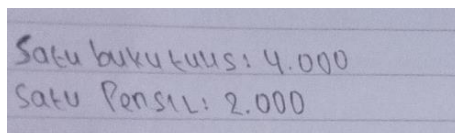 Satu buku tulis: 4.000
Satu Pensil: 2.000